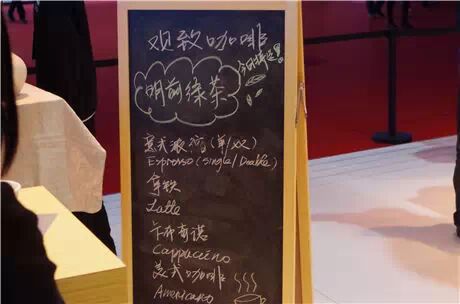 观致咖啡
今日精选!
明前绿茶
意式浓缩(单/双)
Espresso (Single/Double)
拿铁
Latte
卡布奇诺
Cappuccino
美式咖啡
Americano